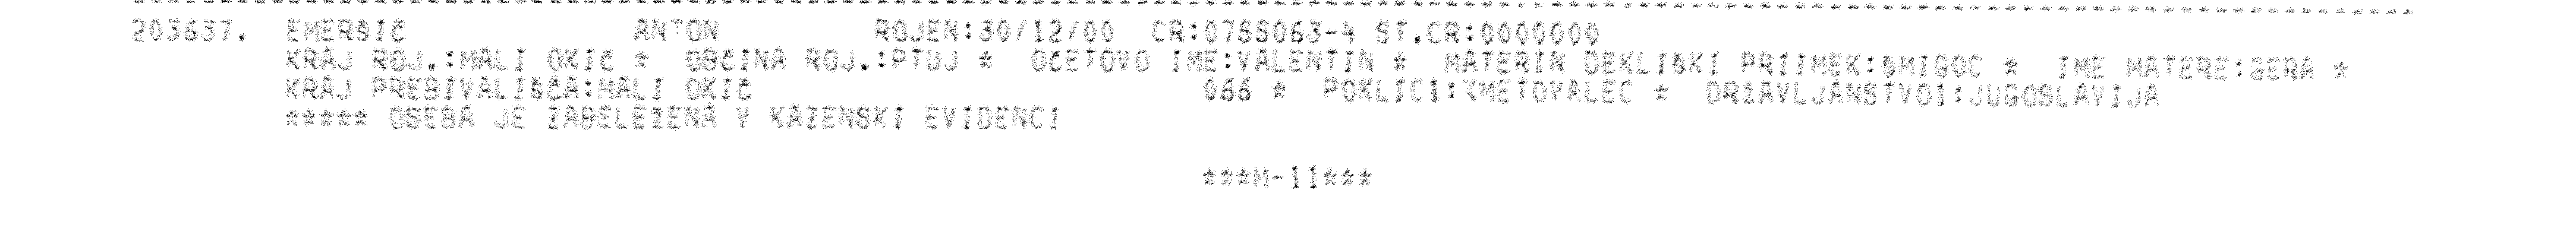 203637. EMERŠIČ ANTON ROJEN:30/12/00 CR:0755063-4 ST.CR:0000000
KRAJ ROJ.:MALI OKIČ * OBČINA ROJ.:PTUJ * OČETOVO IME:VALENTIN * MATERIN DEKLIŠKI PRIIMEK:ŠMIGOC * IME MATERE:GERA *
KRAJ PREBIVALIŠČA:MALI OKIČ 066 * POKLIC1:KMETOVALEC * DRŽAVLJANSTVO1:JUGOSLAVIJA
***** OSEBA JE ZABELEŽENA V KAZENSKI EVIDENCI
***M-11***